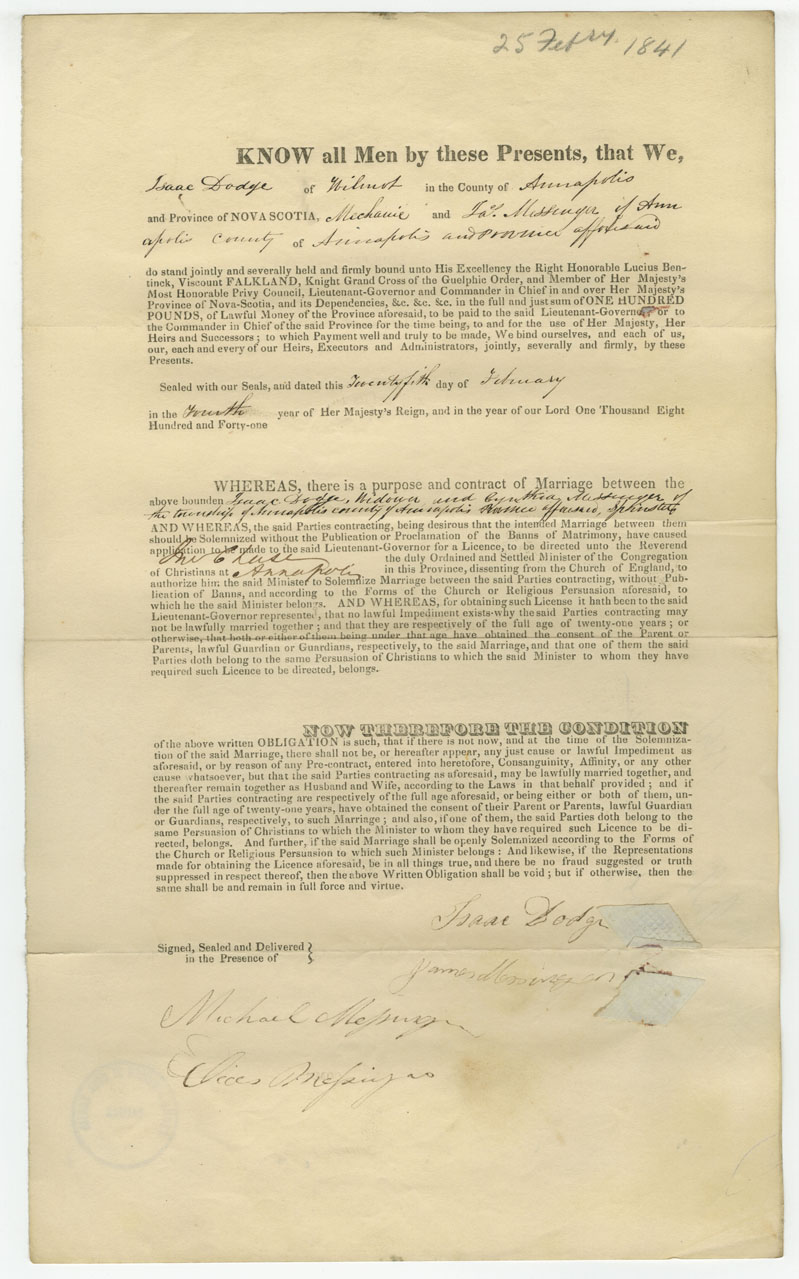 25 Febry. 1841
KNOW all Men by these Presents, that We,
Isaac Dodge of Wilmot in the County of Annapolis
and Province of NOVA SCOTIA, Mechanic and Jas. Messenger of Ann
apolis county of Annapolis and Province afforesaid
do stand jointly and severally held and firmly bound unto His Excellency the Right Honorable Lucius Ben-
tinck, Viscount FALKLAND, Knight Grand Cross of the Guelphic Order, and Member of Her Majesty's
Most Honorable Privy Council, Lieutenant-Governor and Commander in Chief in and over Her Majesty's
Province of Nova-Scotia, and its Dependencies, &c. &c. &c. in the full and just sum of ONE HUNDRED
POUNDS, of Lawful Money of the Province aforesaid, to be paid to the said Lieutenant-Governor or to
the Commander in Chief of the said Province for the time being, to and for the use of Her Majesty, Her
Heirs and Successors; to which Payment well and truly to be made, We bind ourselves, and each of us,
our, each and every of our Heirs, Executors and Administrators, jointly, severally and firmly, by these
Presents.
Sealed with our Seals, and dated this Twentyfifth day of February
in the Fourth year of Her Majesty's Reign, and in the year of our Lord One Thousand Eight
Hundred and Forty-one
WHEREAS, there is a purpose and contract of Marriage between the
above bounden Isaac Dodge, Widower and Cynthia Messenger of
the township of Annapolis county of Annapolis Province afforesaid, Spinster
AND WHEREAS, the said Parties contracting, being desirous that the intended Marriage between them
should be Solemnized without the Publication or Proclamation of the Banns of Matrimony, have caused
application to be made to the said Lieutenant-Governor for a Licence, to be directed unto the Reverend
Chase the duly Ordained and Settled Minister of the Congregation
of Christians at Annapolis in this Province, dissenting from the Church of England, to
authorize him the said Minister to Solemnize Marriage between the said Parties contracting, without Pub-
lication of Banns, and according to the Forms of the Church or Religious Persuasion aforesaid, to
which he the said Minister belongs. AND WHEREAS, for obtaining such License it hath been to the said
Lieutenant-Governor represented, that no lawful Impediment exists why the said Parties contracting may
not be lawfully married together; and that they are respectively of the full age of twenty-one years; or
otherwise, that both or either of them being under that age have obtained the consent of the Parent or
Parents, lawful Guardian or Guardians, respectively, to the said Marriage, and that one of them the said
Parties doth belong to the same Persuasion of Christians to which the said Minister to whom they have
required such Licence to be directed, belongs.
NOW THEREFORE THE CONDITION
of the above written OBLIGATION is such, that if there is not now, and at the time of the Solemniza-
tion of the said Marriage, there shall not be, or hereafter appear, any just cause or lawful Impediment as
aforesaid, or by reason of any Pre-contract, entered into heretofore, Consanguinity, Affinity, or any other
cause whatsoever, but that the said Parties contracting as aforesaid, may be lawfully married together, and
thereafter remain together as Husband and Wife, according to the Laws in that behalf provided; and if
the said Parties contracting are respectively of the full age aforesaid, or being either or both of them, un-
der the full age of twenty-one years, have obtained the consent of their Parent or Parents, lawful Guardian
or Guardians, respectively, to such Marriage; and also, if one of them, the said Parties doth belong to the
same Persuasion of Christians to which the Minister to whom they have required such Licence to be di-
rected, belongs. And further, if the said Marriage shall be openly Solemnized according to the Forms of
the Church or Religious Persuasion to which such Minister belongs: And likewise, if the Representations
made for obtaining the Licence aforesaid, be in all things true, and there be no fraud suggested or truth
suppressed in respect thereof, then the above Written Obligation shall be void; but if otherwise, then the
same shall be and remain in full force and virtue.
Isaac Dodge
Signed, Sealed and Delivered
in the Presence of
James Messenger
Michael Messenger
Messenger